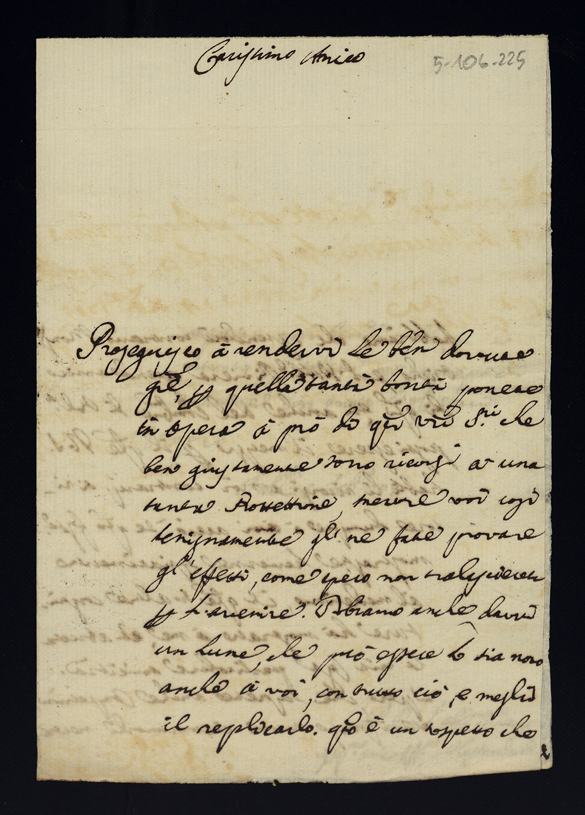 Carissimo Amico
5-106-225
Proseguisco à rendervi le ben dovute
gre, quella tanta bontà ponete
in opera à prò di qti vri Sri che
ben giustamente sono ricorsi at una
tanta Protettione, mentre voi cosi
benignamente gl' ne fate provare
gl' effetti, come spero non tralascierete
l'avenire. Abiamo anche davvi
un lume, che può essere lo sia noto
anche à voi, con tutto ciò, e meglio
il replicarlo. qto è un sospetto che